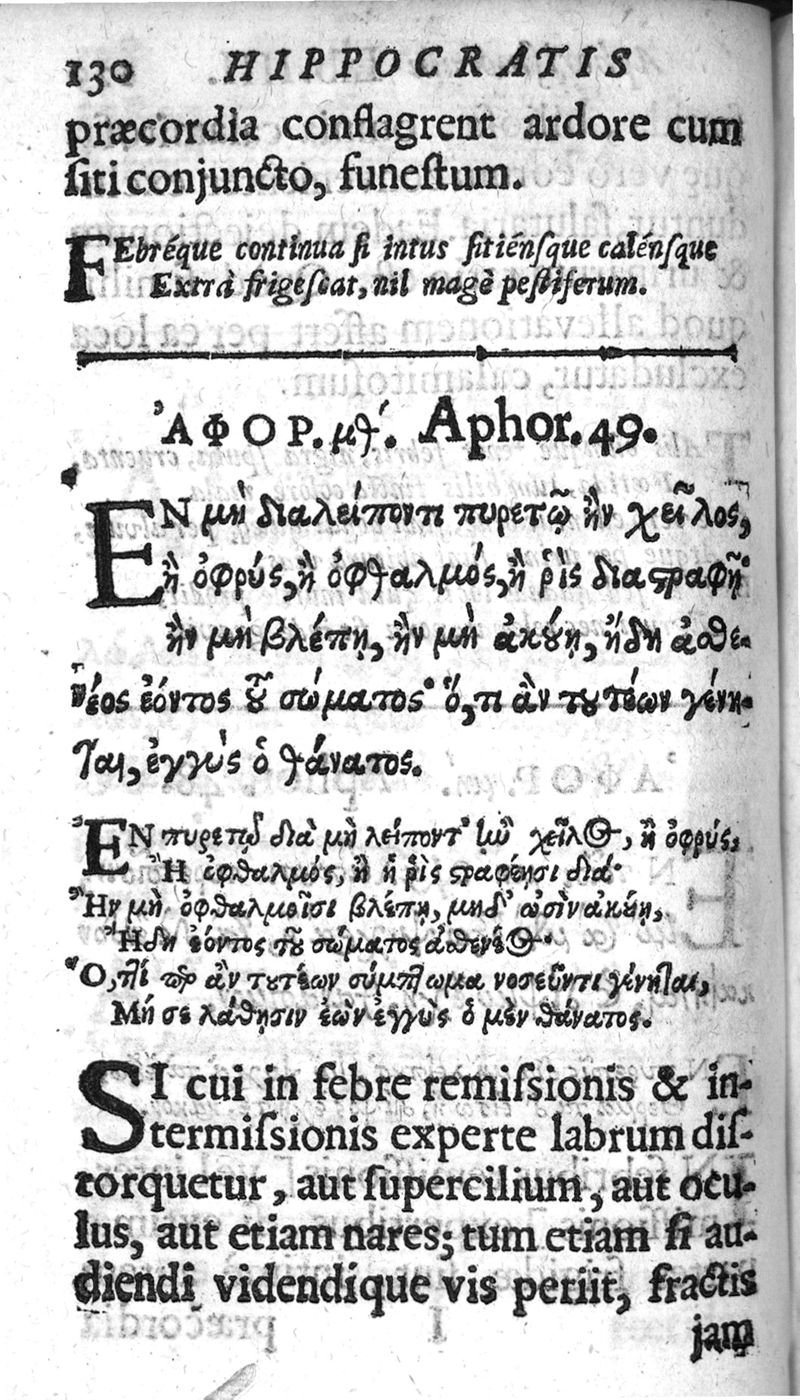 130 HIPPOCRATIS
præcordia conflagrent ardore cum
ſiti conjuncto, funeſtum.
FEbréque continua ſi intus ſitiénſque calénſque
Extrà frigeſcat, nil magè peſtiferum.
ἈΦΟΡ. μθ´. Aphor. 49.
ἘΝ μὴ διαλείποντι πυρετῷ ἢν χεῖλος,
ἢ ὀφρύς, ἢ ὀφθαλμός, ἢ ῥὶς διαστραφῇ·
ἢν μὴ βλέπῃ, ἢν μὴ ἀκούῃ, ἤδη ἀσθε-
νέος ἐόντος τοῦ σώματος· ὅ, τι ἂν τουτέων γένη-
ται, ἐγγὺς ὁ θάνατος.
ἘΝ πυρετῷ διὰ μὴ λείποντ' ἢν χεῖλος, ἢ ὀφρύς,
Ἢ ὀφθαλμός, ἢ ἡ ῥὶς στραφέησι διά·
Ἢν μὴ ὀφθαλμοῖσι βλέπῃ, μηδ' ὠσὶν ἀκούῃ,
Ἤδη ἐόντος τοῦ σώματος ἀσθενέος·
Ὅ, τί περ ἂν τουτέων σύμπτωμα νοσεῦντι γένηται,
Μή σε λάθῃσιν ἐὼν ἐγγὺς ὁ μὲν θάνατος.
SI cui in febre remiſsionis & in-
termiſsionis experte labrum diſ-
torquetur, aut ſupercilium, aut ocu-
lus, aut etiam nares; tum etiam ſi au-
diendi videndíque vis periit, fractis
jam